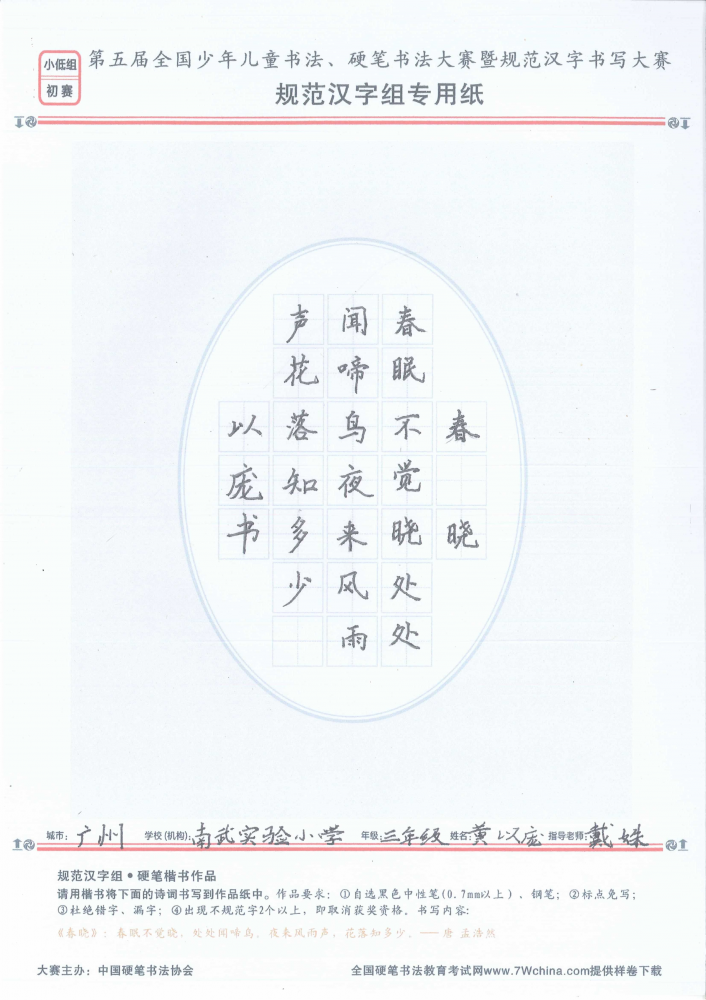 小低组
初赛
第五届全国少年儿童书法、硬笔书法大赛暨规范汉字书写大赛
规范汉字组专用纸
春晓
春眠不觉晓处处
闻啼鸟夜来风雨
声花落知多少
以庞书
城市：广州 学校(机构)：南武实验小学 年级：三年级 姓名：黄以庞 指导老师：戴姝
规范汉字组•硬笔楷书作品
请用楷书将下面的诗词书写到作品纸中。作品要求：①自选黑色中性笔(0.7mm以上)、钢笔；②标点免写；
③杜绝错字、漏字；④出现不规范字2个以上，即取消获奖资格。书写内容：
《春晓》：春眠不觉晓，处处闻啼鸟。夜来风雨声，花落知多少。——唐 孟浩然
大赛主办：中国硬笔书法协会 全国硬笔书法教育考试网www.7Wchina.com提供样卷下载